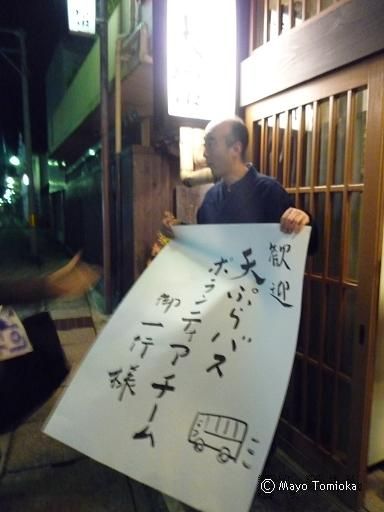 歓迎
天ぷらバス
ボランティアチーム
御一行様
© Mayo Tomioka